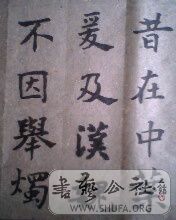 昔在中葉
爰及漢
不因舉燭
書藝公社
WWW.SHUFA.ORG